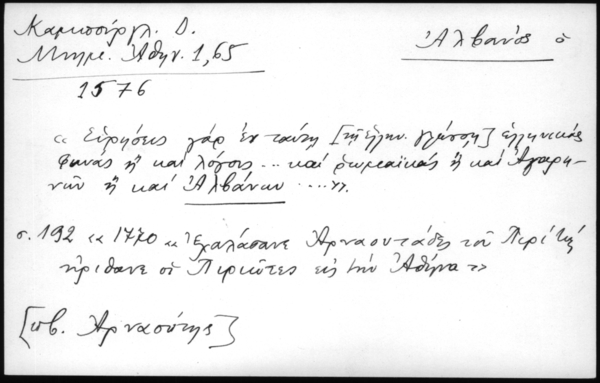 Καμπούργλ. Δ.
Μνημ. Ἀθην. 1,65
Ἀλβανός ὁ
1576
« Εὑρήσεις γάρ ἐν ταύτῃ [τῇ ἑλλην. γλώσσῃ] ἑλληνικάς
φωνάς ἤ καί λόγους ... καί ῥωμαϊκάς ἤ καί Ἀγαρη-
νῶν ἤ καί Ἀλβάνων ....».
σ. 192 « 1770 « Ἐχαλάσανε Ἀρναουτάδες τοῦ Περί
ἤρθανε οἱ Περιῶτες εἰς τήν Ἀθήνα »
[πβ. Ἀρναούτης]